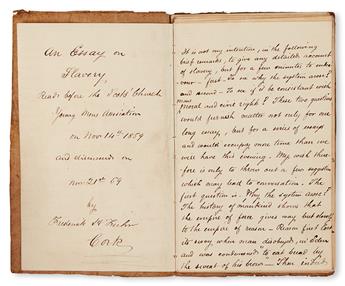 An Essay on
Slavery,
Read before the Scots Church
Young Mens Association
on Novr 14th 1859
and discussed on
Novr 21st 59
by
Frederick H
Cork
It is not my intention, in the following
brief remarks, to give any detailed account
of slavery, but for a few minutes to endea
vour - first - To see why the system arose?
and second - To see if it be consistent with
moral and civil right? These two questions
would furnish matter not only for one
long essay, but for a series of essays
and would occupy more time than we
will have this evening. My wish there-
fore is only to throw out a few
which may lead to conversation. The
first question is - Why the system arose?
The history of mankind shows that
the empire of force gives way but slowly
to the empire of reason - Reason first lost
its sway when man disobeyed, in Eden
and was condemned "to eat bread by
the sweat of his brow" -